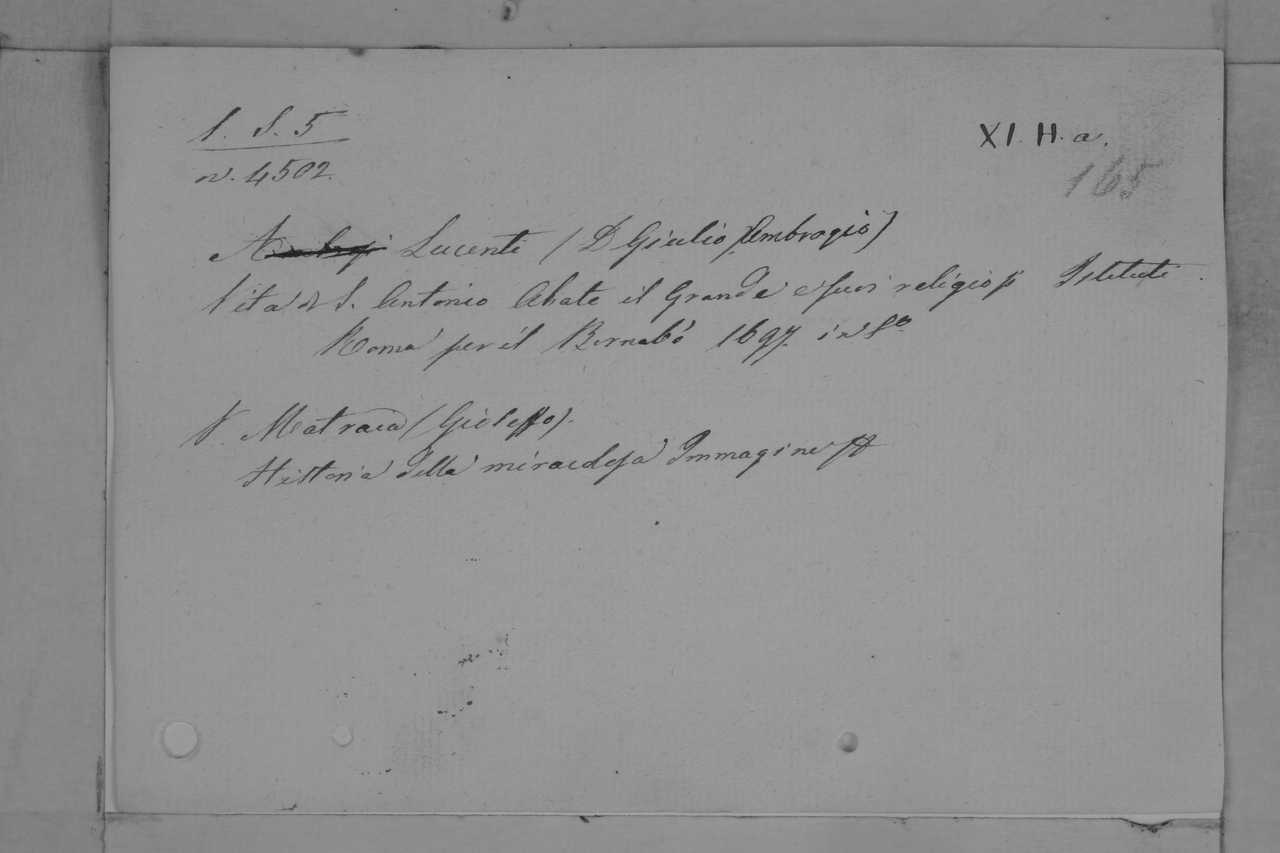 S. S. 5
XI. H. a.
n. 4502.
165
Lucenti (D Giulio Ambrogio)
Vita di S. Antonio Abate il Grande e suoi religiosi Istituti.
Roma per il Bernabò 1697. in 8º
V. Matraia (Gioseffo).
Historia della miracolosa Immagine